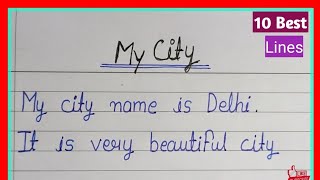 10 Best
Lines
My City
My city name is Delhi.
It is very beautiful city